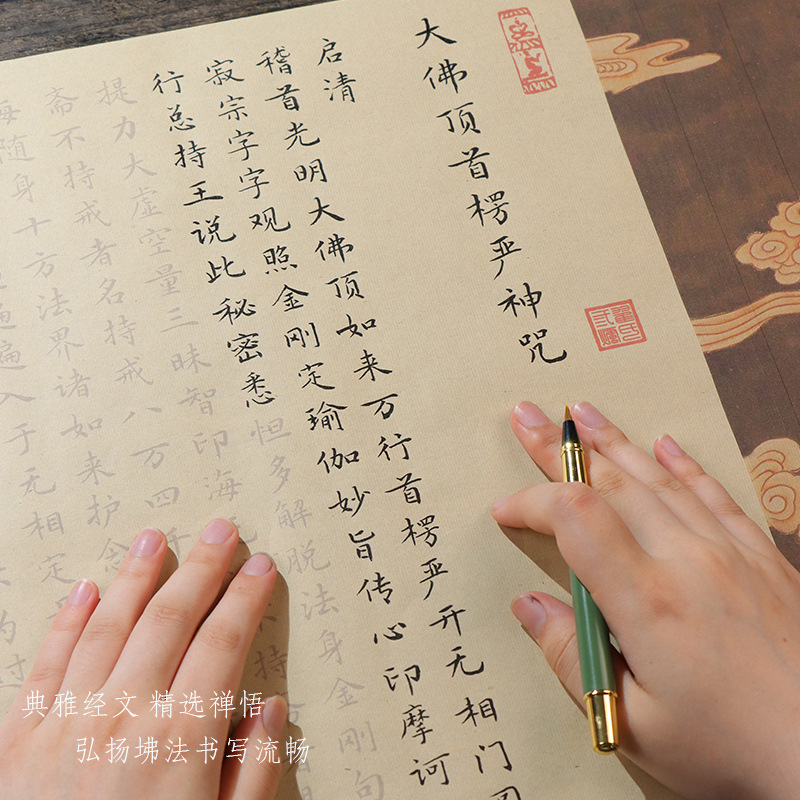 大佛顶首楞严神咒
启清
稽首光明大佛顶如来万行首楞严开无相门
寂宗字字观照金刚定瑜伽妙旨传心印摩诃
行总持王说此秘密悉怛多解脱法身金刚句
提力大虚空量三昧智印海无
持
斋不持戒者名持戒八万四千
随身十方法界诸如来护念
遍入于无相定
典雅经文 精选禅悟
弘扬坲法书写流畅